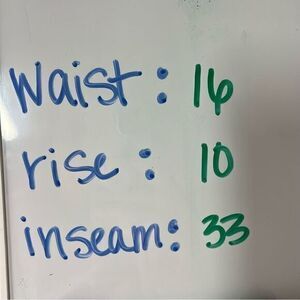 Waist: 16
rise: 10
inseam: 33